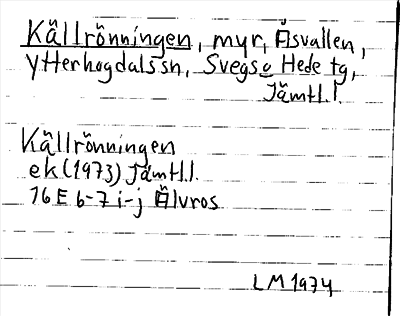 Källrönningen, myr, Åsvallen,
Ytterhogdals sn, Svegs o Hede tg,
Jämtl.l.
Källrönningen
ek (1973) Jämtl.l.
16E 6-7 i-j Älvros
LM 1974